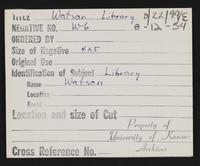 TITLE Watson Library D/22/99/E
NEGATIVE NO. W-6 8-12-54
ORDERED BY
Size of Negative 4x5
Original Use
Identification of Subject Library
Name Watson
Location
Event
Location and size of Cut
Property of
University of Kansas
Archives
Cross Reference No.